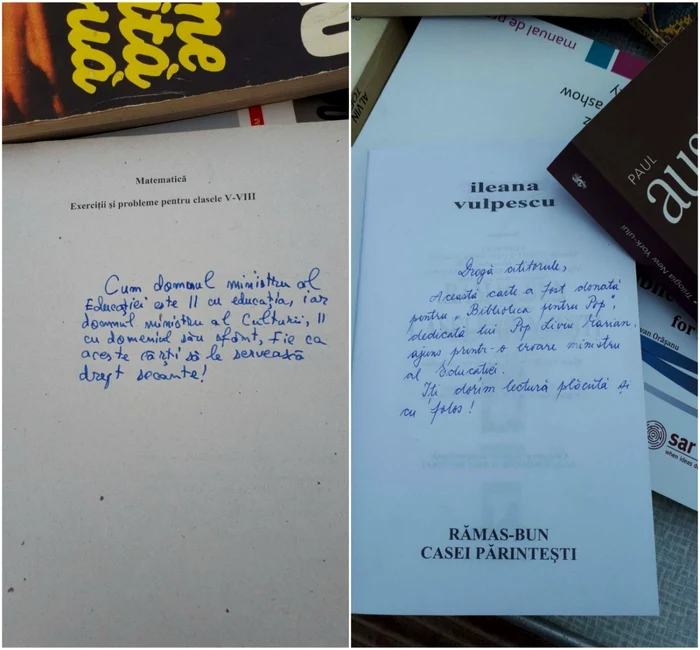 ne
ită
nă
Matematică
Exerciții și probleme pentru clasele V-VIII
Cum domnul ministru al
Educației este || cu educația, iar
domnul ministru al Culturii, ||
cu domeniul său sfânt, fie ca
aceste cărți să le servească
drept secante!
manual de
ashow
ALVIN
PAUL
au
Trilogia New York-ului
ileana
vulpescu
Dragă cititorule,
Această carte a fost donată
pentru „Biblioteca pentru Pop",
dedicată lui Pop Liviu Marian,
ajuns printr-o eroare ministru
al Educației.
Îți dorim lectură plăcută și
cu folos!
for
van Orășanu
sar
when ideas
RĂMAS-BUN
CASEI PĂRINTEȘTI